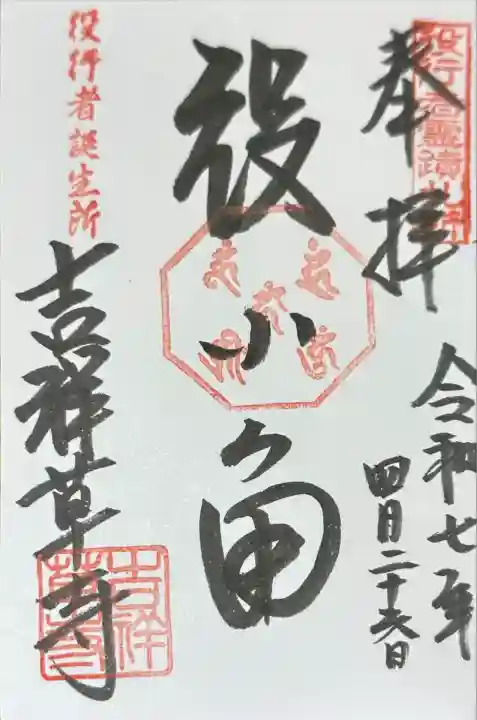 役行者霊蹟札所
奉拝
令和七年
四月二十六日
役小角
役行者誕生所
吉祥草寺
吉祥草寺